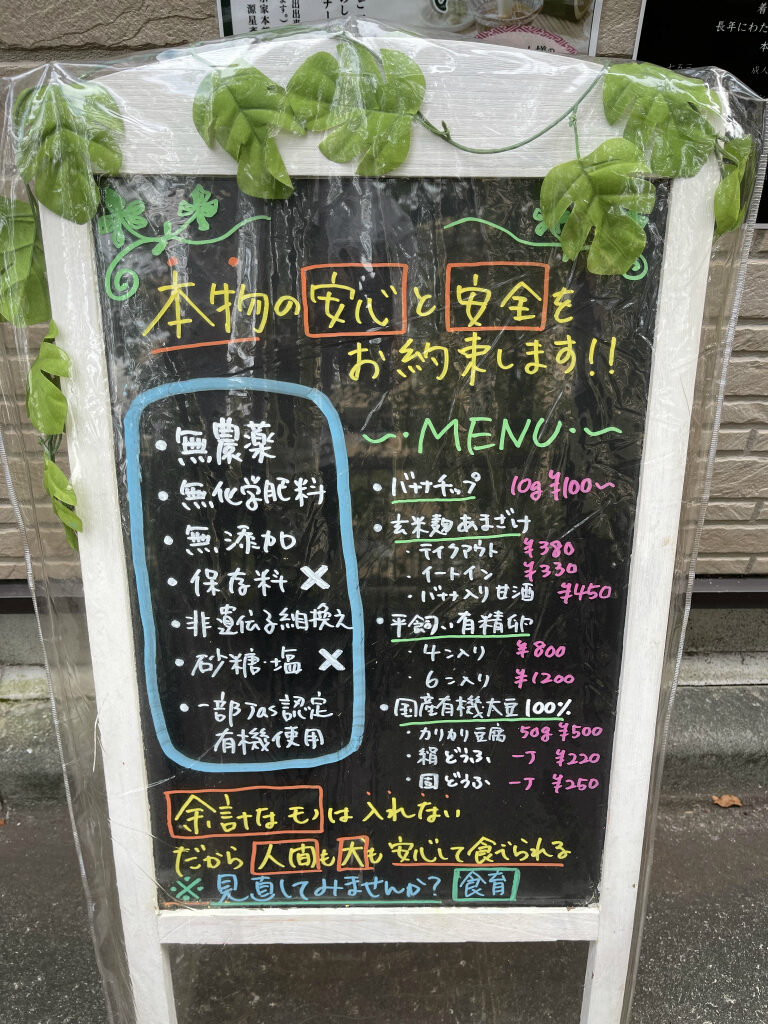 長年にわた
本物の安心と安全を
お約束します!!
・無農薬
・無化学肥料
・無添加
・保存料×
・非遺伝子組換え
・砂糖・塩×
・一部Jas認定
有機使用
〜・MENU・〜
・バナナチップ 10g ¥100〜
・玄米麹あまざけ
・テイクアウト ¥380
・イートイン ¥330
・バナナ入り甘酒 ¥450
・平飼い有精卵
・4コ入り ¥800
・6コ入り ¥1200
・国産有機大豆100%
・カリカリ豆腐 50g ¥500
・絹どうふ 一丁 ¥220
・固どうふ 一丁 ¥250
余計なモノは入れない
だから人間も犬も安心して食べられる
※見直してみませんか?食育